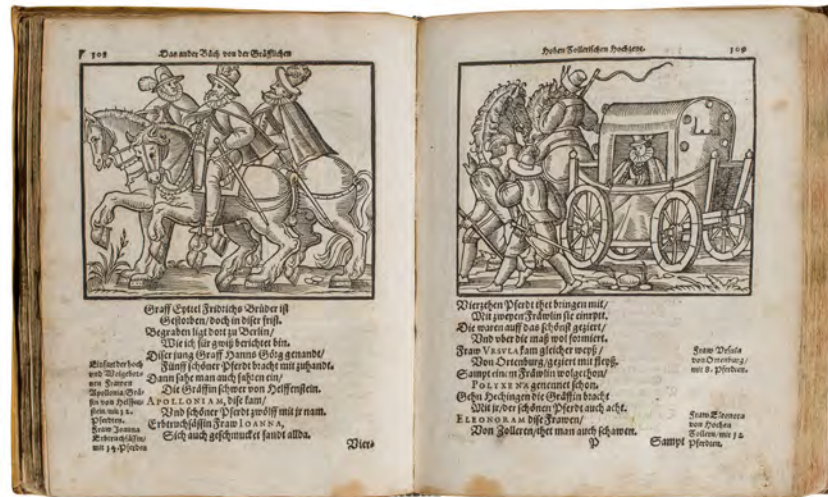 108
Das ander Bůch von der Gräfflichen
Graff Eyttel Fridrichs Brůder ist
Gestorben/doch in diser frist.
Begraben ligt dort zu Berlin/
Wie ich für gwiß berichtet bin.
Diser jung Graff Hanns Görg genandt/
Fünff schöner Pferdt bracht mit zuhandt.
Dann sahe man auch fahren ein/
Die Gräffin schwer von Helffenstein.
APOLLONIAM, dise kam/
Vnd schöner Pferdt zwölff mit jr nam.
Erbtruchsässin Fraw IOANNA,
Sich auch geschmucket fandt allda.
der hoch
vnd Wolgebor-
nen Frawen
Apollonia/Grä-
fin von Helffen-
stein/mit 12.
Pferdten.
Fraw Joanna
Erbtruchsässin/
mit 14. Pferdten
Vier-
Hohen Zollerischen Hochzeyt.
109
Vierzehen Pferdt thet bringen mit/
Mit zweyen Fräwlin sie einrytt.
Die waren auff das schönst geziert/
Vnd vber die maß wol formiert.
Fraw VRSVLA kam gleicher weyß/
Von Ortenburg/geziert mit fleyß.
Sampt einem Fräwlin wolgethon/
POLYXENA genennet schon.
Gehn Hechingen die Gräffin bracht
Mit jr/der schönen Pferdt auch acht.
ELEONORAM dise Frawen/
Von Zolleren/thet man auch schawen.
Fraw Vrsula
von Ortenburg/
mit 8. Pferdten.
Fraw Eleonora
von Hochen
Zollern/mit 12
Pferdten.
P
Sampt